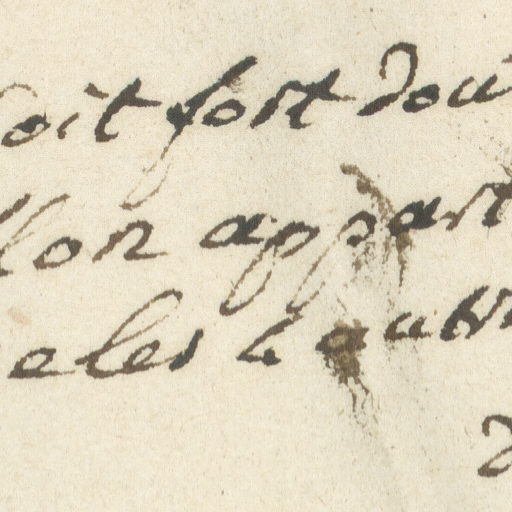 doit fort dou
lon appart
eles L autr
d